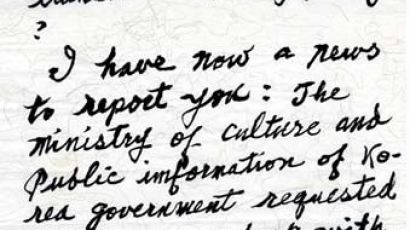 ?
I have now a news
to report you: The
ministry of culture and
Public information of Ko-
rea government requested
with